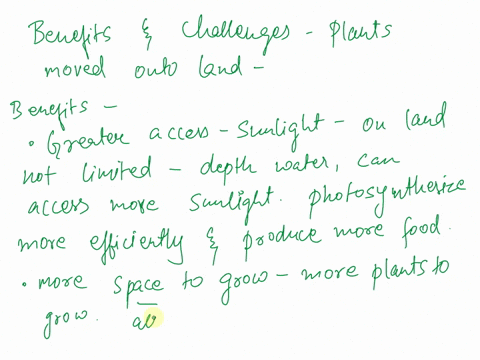 Benefits & Challenges - Plants
moved onto land -
Benefits -
• Greater access - Sunlight - on land
not limited - depth water, can
access more Sunlight. Photosynthesize
more efficiently & produce more food.
• more space to grow - more plants to
grow.